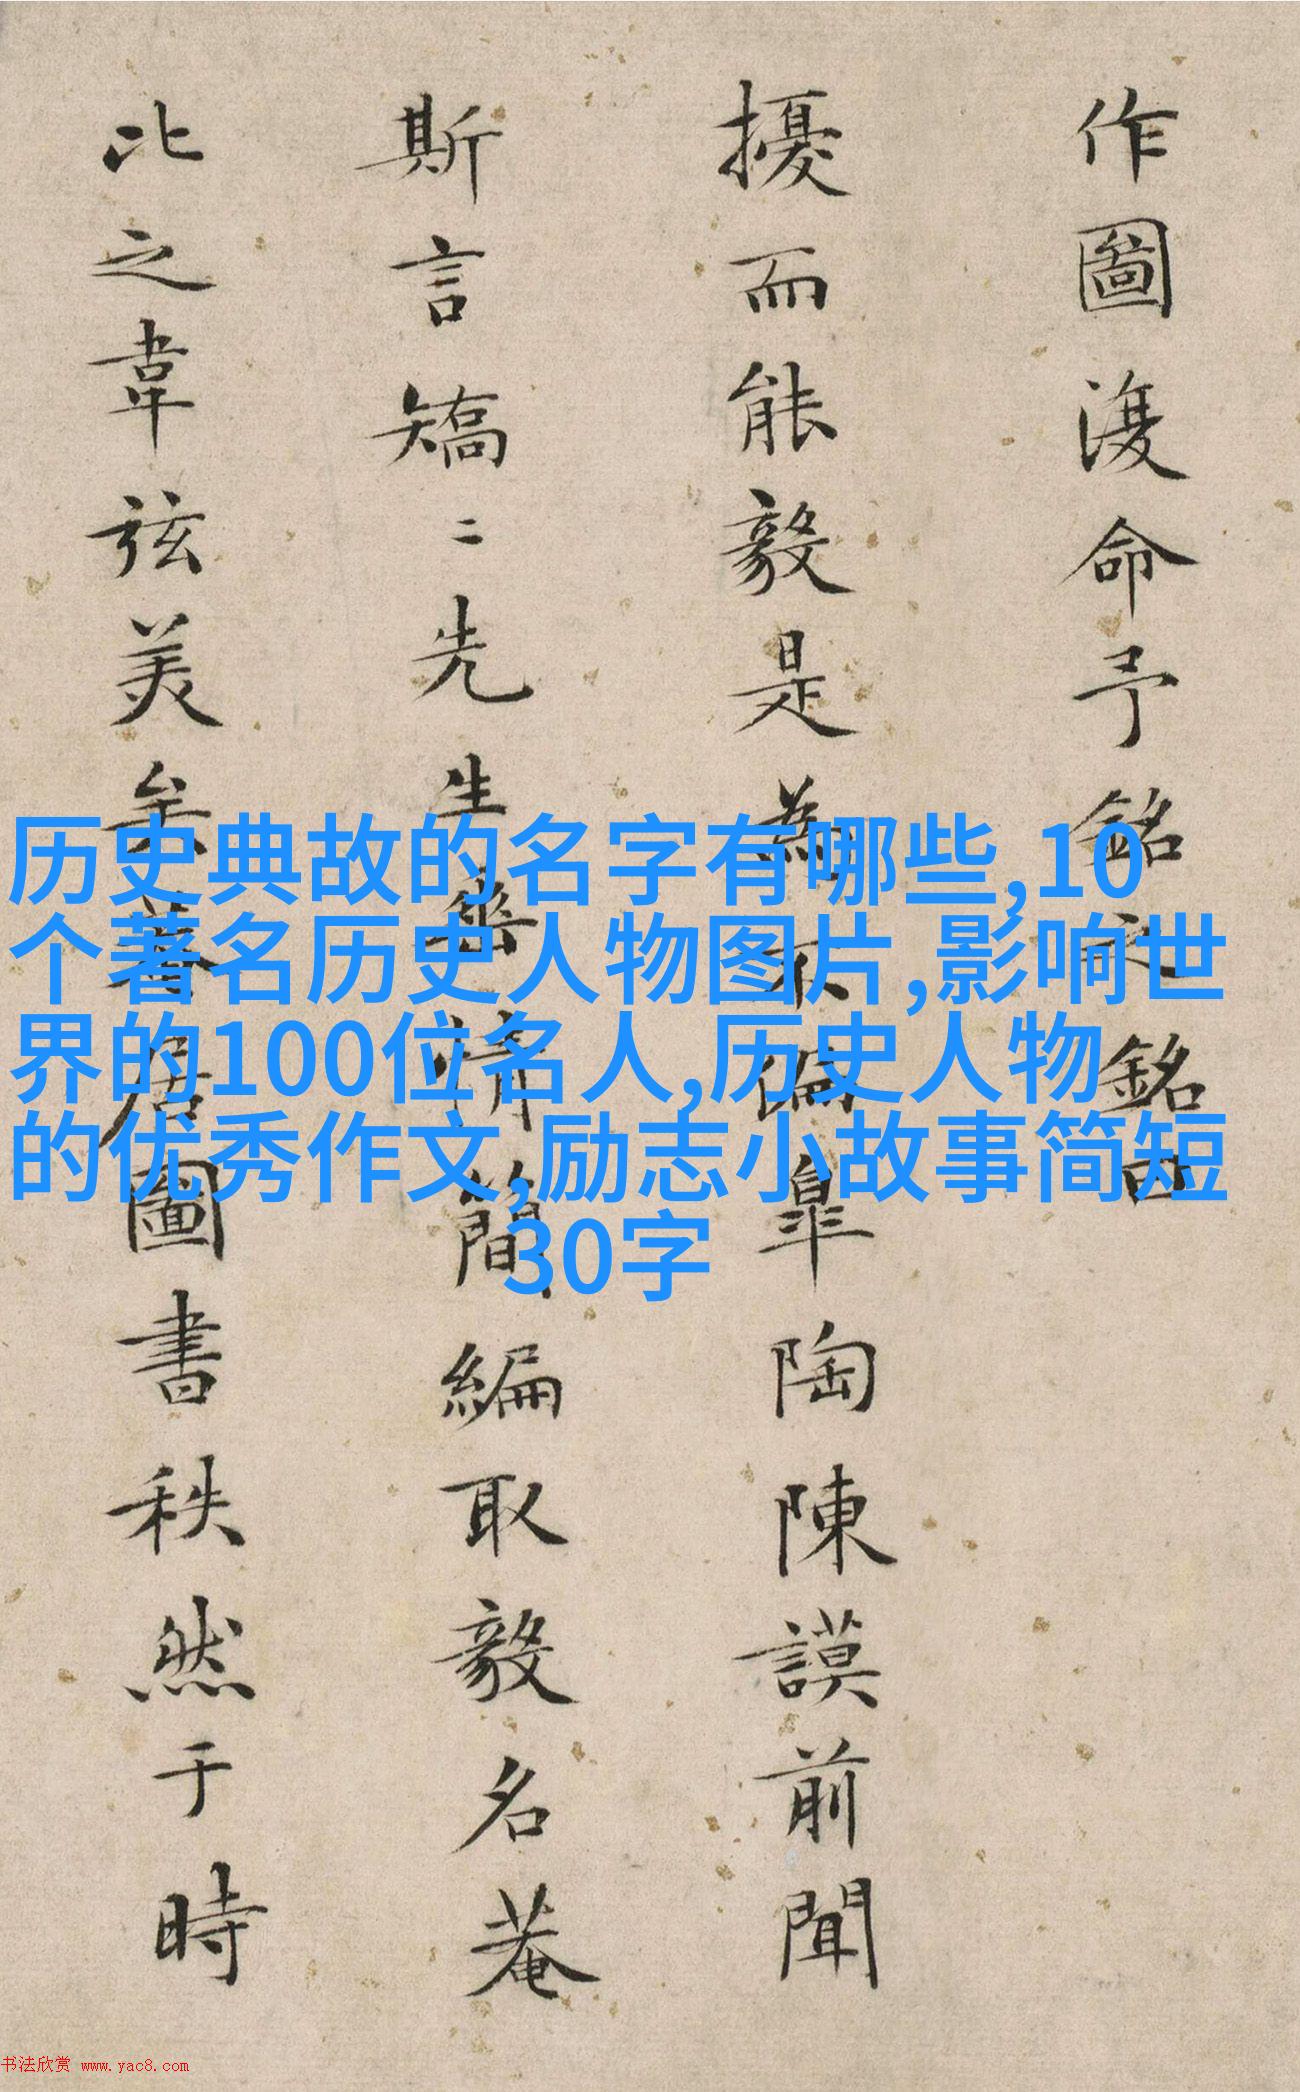 作圖復命予銘之銘曰
擾而能毅是為不偏皐陶陳謨前聞
斯言矯二先生情簡編取毅名菴
比之韋弦美矣居圖書秩然于時
历史典故的名字有哪些,10
个著名历史人物图片,影响世
界的100位名人,历史人物
的优秀作文,励志小故事简短
30字
书法欣赏 www.yac8.com